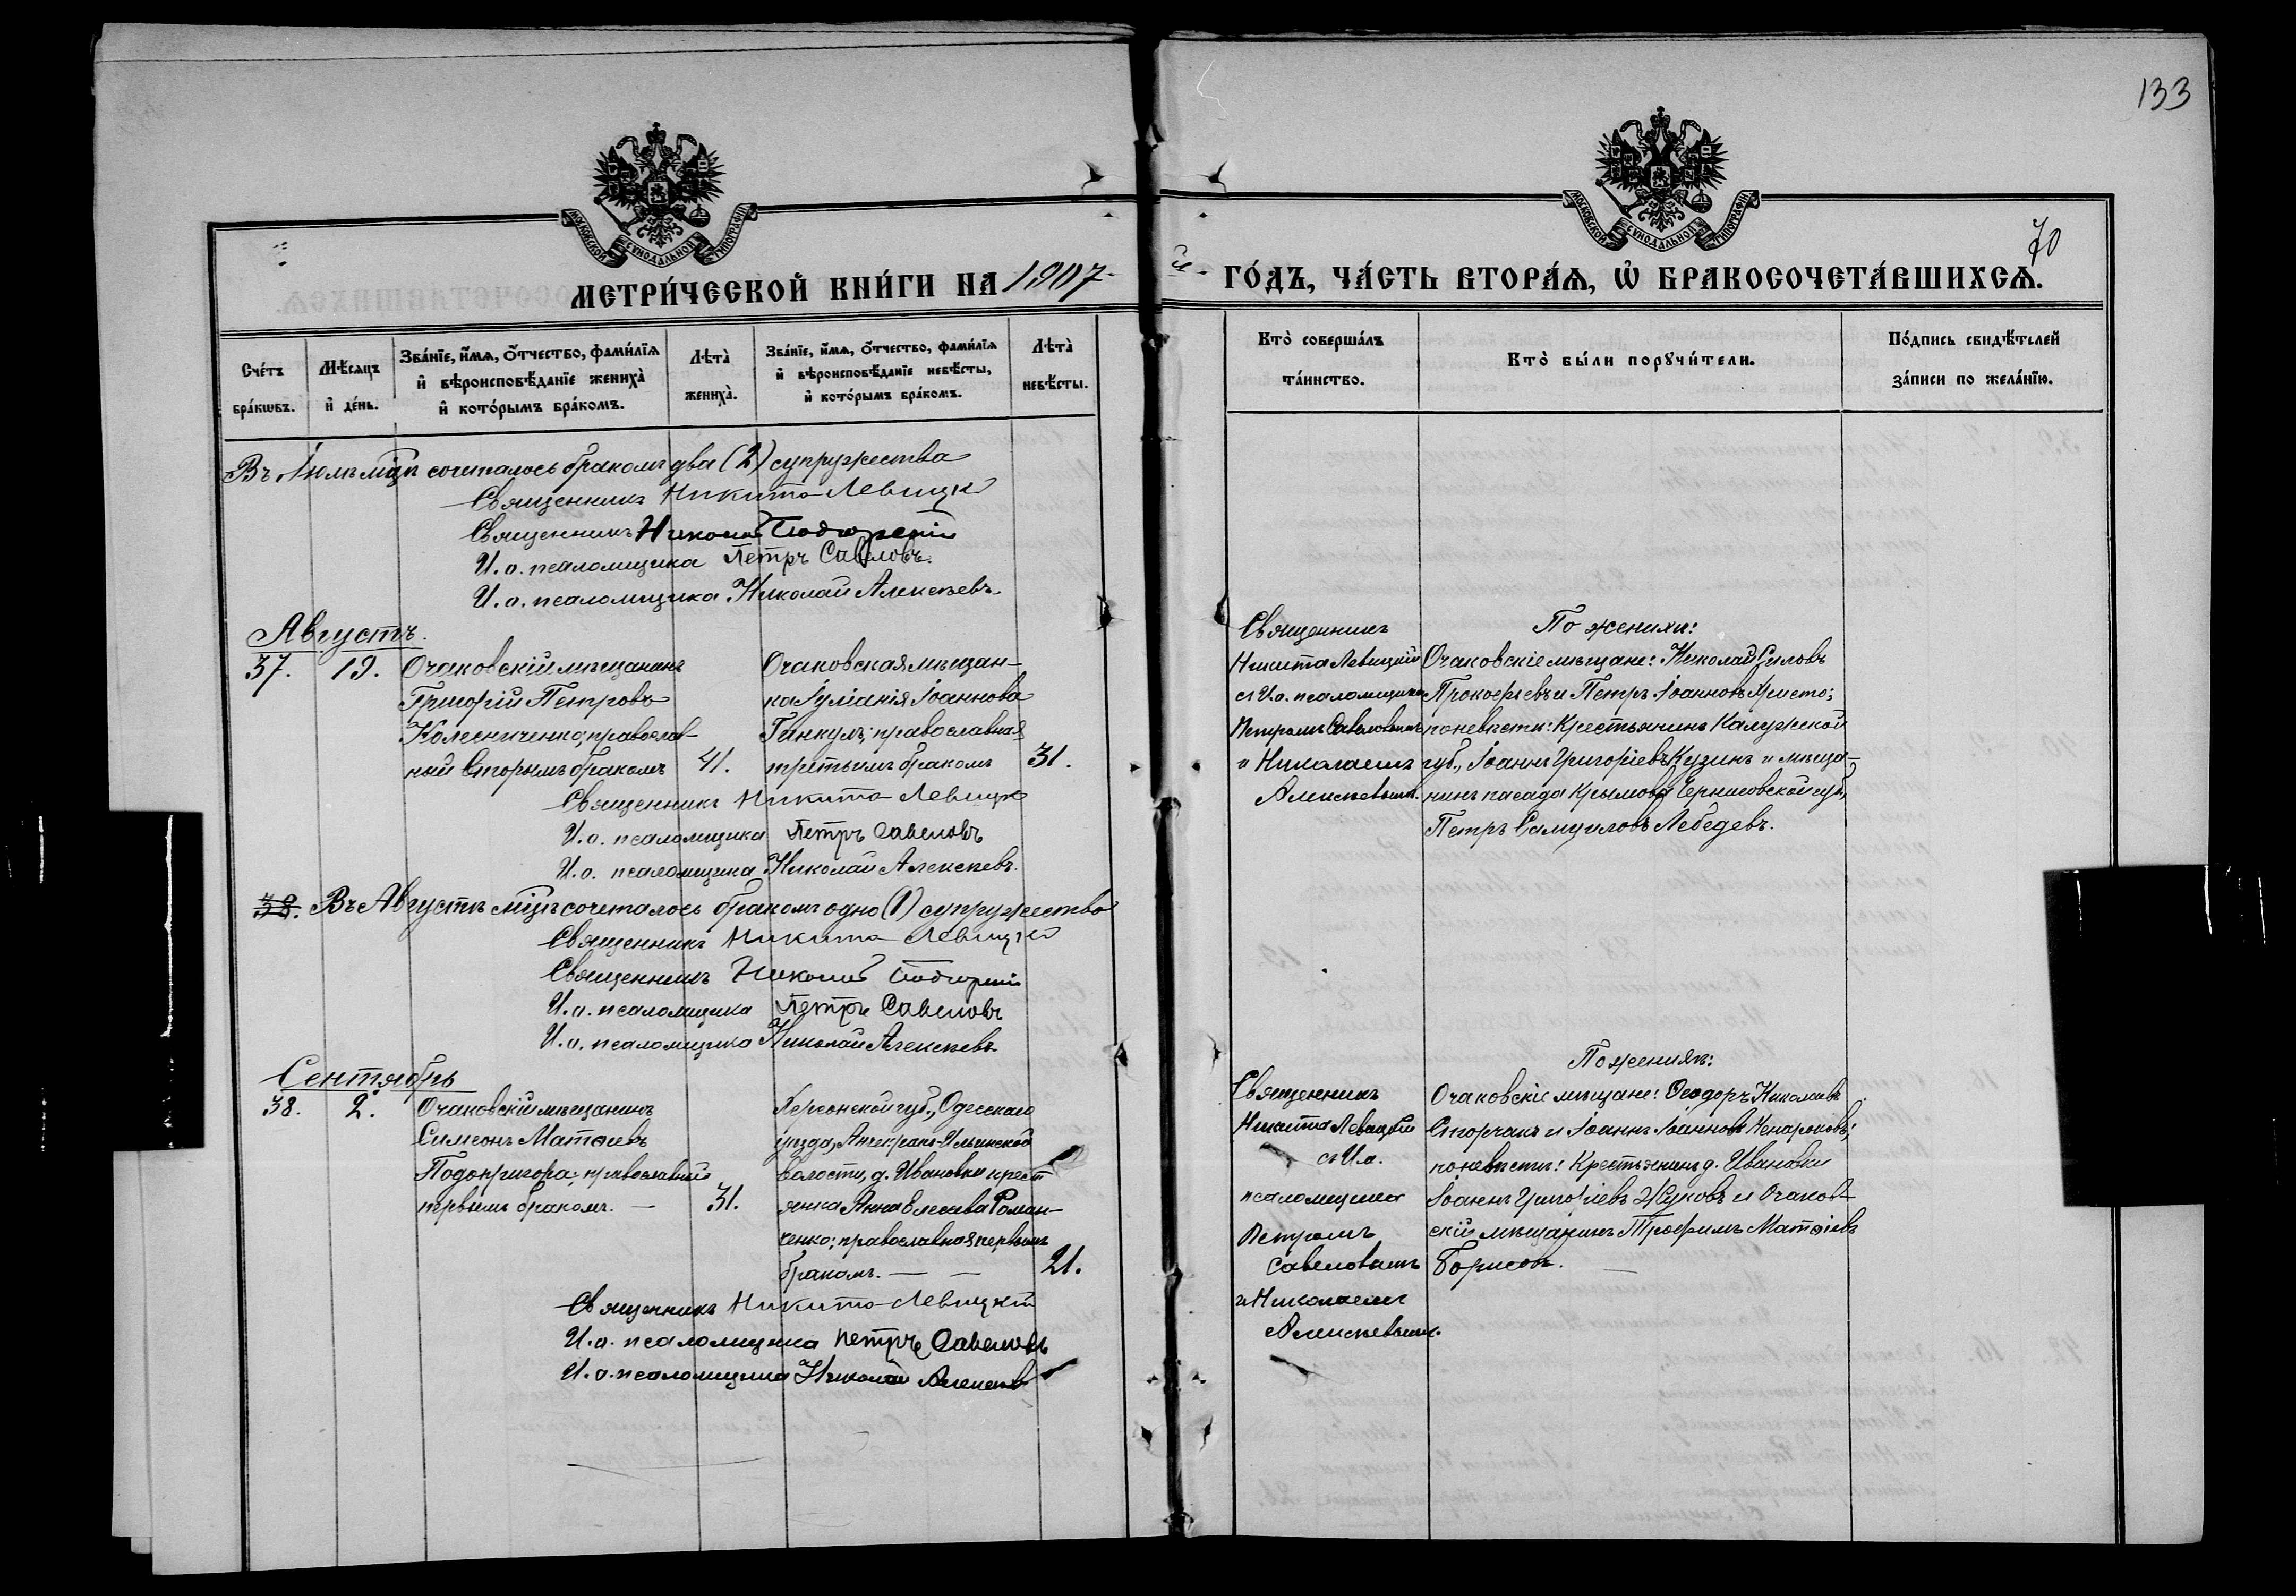 133
70
МОСКОВСКОЙ СѴНОДАЛЬНОЙ ТИПОГРАФІИ
МОСКОВСКОЙ СѴНОДАЛЬНОЙ ТИПОГРАФІИ
МЕТРИ́ЧЕСКОЙ КНИ́ГИ НА 1907-
й - ГО́ДЪ, ЧА́СТЬ ВТОРА́Ѧ, Ѽ БРАКОСОЧЕТА́ВШИХСѦ.
Сче́тъ бра́кѡвъ.
Мѣ́сѧцъ и҆ де́нь.
Зва́нїе, и҆́мѧ, ѻ҆́тчество, фамилїѧ
и҆ вѣроисповѣ́данїе жениха̀
и҆ кото́рымъ бра́комъ.
Лѣта̀ жениха̀.
Зва́нїе, и҆́мѧ, ѻ҆́тчество, фамилїѧ
и҆ вѣроисповѣ́данїе невѣ́сты,
и҆ кото́рымъ бра́комъ.
Лѣта̀ невѣ́сты.
Кто̀ соверша́лъ та́инство.
Кто̀ бы́ли порꙋчи́тели.
По́дпись свидѣ́телей за́писи по жела́нїю.
Въ Іюлѣ мцѣ сочеталось бракомъ два (2) супружества
Священникъ Никита Левицкій
Священникъ Николай Подгорскій
И. о. псаломщика Петръ Савеловъ.
И. о. псаломщика Николай Алексѣевъ
Августъ.
37. 19.
Очаковскій мѣщанинъ
Григорій Петровъ
Колесниченко; православ-
ный вторымъ бракомъ 41.
Очаковская мѣщан-
ка Іуліанія Іоаннова
Гинкулъ; православная
третьимъ бракомъ 31.
Священникъ
Никита Левицкій
съ И.о. псаломщика
Петромъ Савеловымъ
и Николаемъ
Алексѣевымъ.
По женихѣ:
Очаковскіе мѣщане: Николай Силовъ
Прокофьевъ и Петръ Іоанновъ Христо;
по невѣстѣ: Крестьянинъ Калужской
губ., Іоаннъ Григоріевъ Кузинъ и мѣща-
нинъ посада Крымова Черниговской губ.,
Петръ Самуиловъ Лебедевъ.
Священникъ Никита Левицкій
И. о. псаломщика Петръ Савеловъ
И. о. псаломщика Николай Алексѣевъ.
38. Въ Августѣ мцѣ сочеталось бракомъ одно (1) супружество
Священникъ Никита Левицкій
Священникъ Николай Подгорскій
И. о. псаломщика Петръ Савеловъ
И. о. псаломщика Николай Алексѣевъ
Сентябрь
38. 2.
Очаковскій мѣщанинъ
Симеонъ Матѳіевъ
Подопригора; православный
первымъ бракомъ. — 31.
Херсонской губ., Одесскаго
уѣзда, Анчекрако-Ильинской
волости, д. Ивановки крест
янка Анна Елисеева Роман-
ченко; православная первымъ
бракомъ. — — 21.
Священникъ
Никита Левицкій
съ И.о.
псаломщика
Петромъ
Савеловымъ
и Николаемъ
Алексѣевымъ.
По женихѣ:
Очаковскіе мѣщане: Ѳеодоръ Николаевъ
Сторчакъ и Іоаннъ Іоанновъ Ненароковъ;
по невѣстѣ: Крестьянинъ д. Ивановки
Іоаннъ Григоріевъ Жуковъ и Очаков-
скій мѣщанинъ Трофимъ Матѳіевъ
Борисовъ. —
Священникъ Никита Левицкій
И. о. псаломщика Петръ Савеловъ
И. о. псаломщика Николай Алексѣевъ